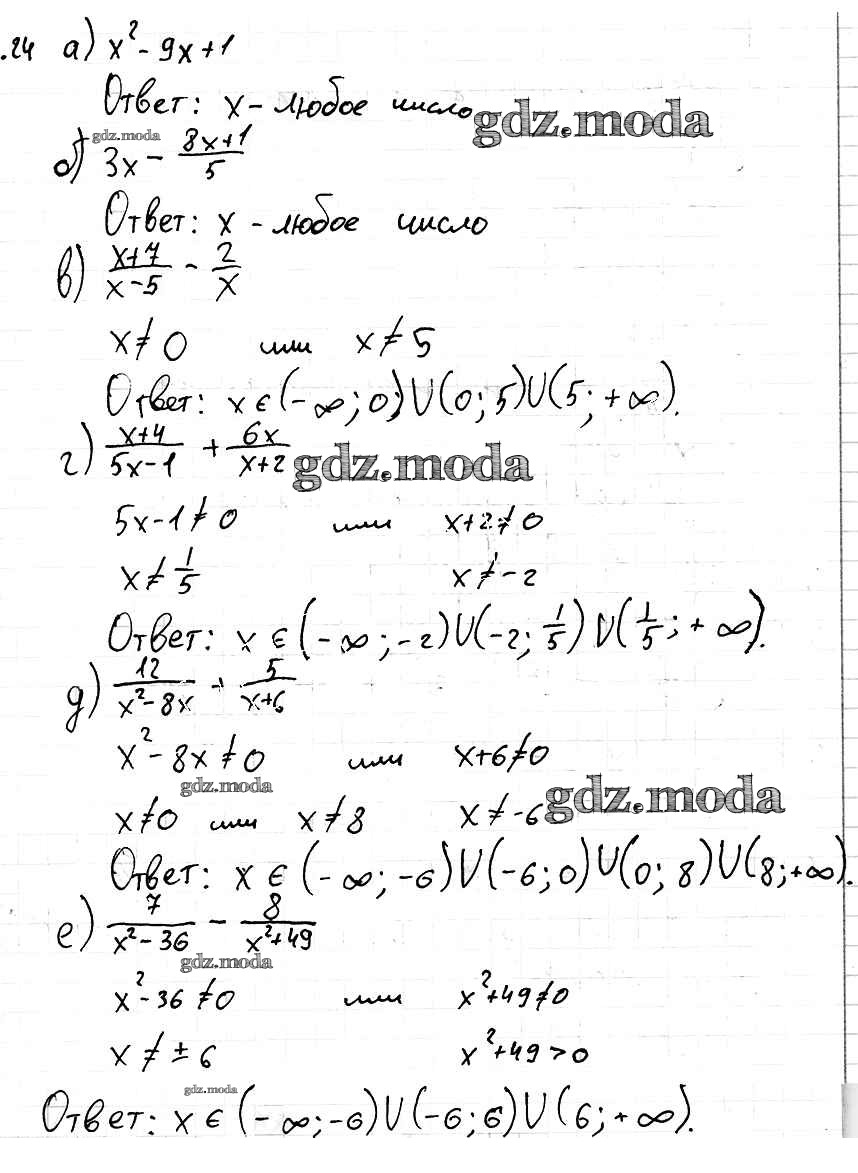 .24 а) x² - 9x + 1
Ответ: x - любое число
gdz.moda
gdz.moda
б) 3x - (8x+1)/5
Ответ: x - любое число
в) (x+7)/(x-5) - 2/x
x ≠ 0 или x ≠ 5
Ответ: x ∈ (-∞; 0) ∪ (0; 5) ∪ (5; +∞).
г) (x+4)/(5x-1) + 6x/(x+2)
gdz.moda
5x-1 ≠ 0 или x+2 ≠ 0
x ≠ 1/5 x ≠ -2
Ответ: x ∈ (-∞; -2) ∪ (-2; 1/5) ∪ (1/5; +∞).
д) 12/(x²-8x) + 5/(x+6)
x² - 8x ≠ 0 или x+6 ≠ 0
gdz.moda
gdz.moda
x ≠ 0 или x ≠ 8 x ≠ -6
Ответ: x ∈ (-∞; -6) ∪ (-6; 0) ∪ (0; 8) ∪ (8; +∞).
е) 7/(x²-36) - 8/(x²+49)
gdz.moda
x²-36 ≠ 0 или x²+49 ≠ 0
x ≠ ± 6 x²+49 > 0
gdz.moda
Ответ: x ∈ (-∞; -6) ∪ (-6; 6) ∪ (6; +∞).